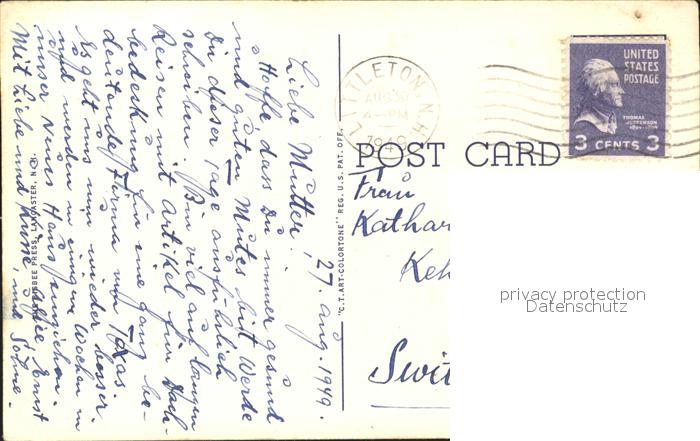 27. Aug. 1949.
Liebe Mutter!
Hoffe, dass Du immer gesund
und guten Mutes bist. Werde
Dir dieser Tage ausführlich
schreiben. Bin viel auf langen
Reisen mit Artikel für Dach-
bedeckung für eine ganz be-
deutende Firma von Texas.
Es geht uns nun wieder besser.
und werden in einigen Wochen in
unser Neues Haus einziehen.
Mit Liebe und Küsse, Ernst
und Söhne.
BISBEE PRESS, LANCASTER, N.H.
"C.T. ART-COLORTONE" REG. U.S. PAT. OFF.
LITTLETON, N.H.
AUG 30
PM
1949
UNITED
STATES
POSTAGE
THOMAS
JEFFERSON
3 CENTS 3
POST CARD
Frau
Kathar
Keh
Swit
privacy protection
Datenschutz